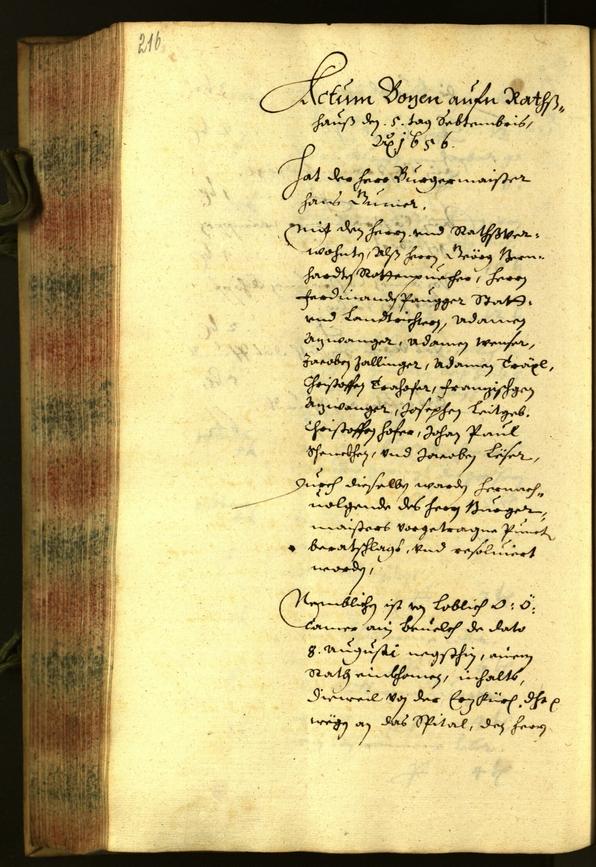 216
Actum Bozen aufn Rathß-
hauß den 5. tag Septembris,
A.o 1656.
Hat der herr Burgermaister
hanß
mit den herrn und Rathßver-
wohnten, Alß herrn Geörg Bern-
hardten Rottenpuecher, herrn
Ferdinandt Paugger Statt-
und Landtrichtern, Adamen
Anwanger, Adamen Wenser,
Jacoben Zallinger, Adamen Träpl,
Christoffen Trahofer, Franziskhen
Anwanger, Josephen Leitgeb,
Christoffen Hofer, Johan Paul
und Jacoben
Durch dieselben worden hernach-
uolgende des herrn Burger-
maisters vorgetragne Punct
beratschlagt, und resoluiert
worden,
Nemblichen ist von Loblich O: Ö:
Camer ain beuelch de dato
8. Augusti negsthin, ainem
Rath einkhomen, inhalts,
Dieweil von der
wegen an das Spital, den herrn